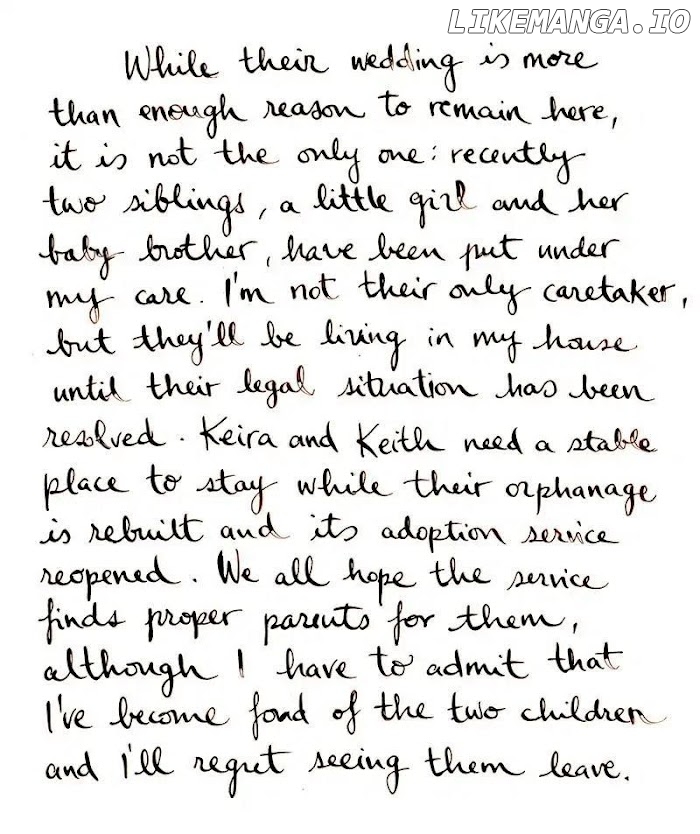 LIKEMANGA.IO
While their wedding is more
than enough reason to remain here,
it is not the only one: recently
two siblings, a little girl and her
baby brother, have been put under
my care. I'm not their only caretaker,
but they'll be living in my house
until their legal situation has been
resolved. Keira and Keith need a stable
place to stay while their orphanage
is rebuilt and its adoption service
reopened. We all hope the service
finds proper parents for them,
although I have to admit that
I've become fond of the two children
and I'll regret seeing them leave.